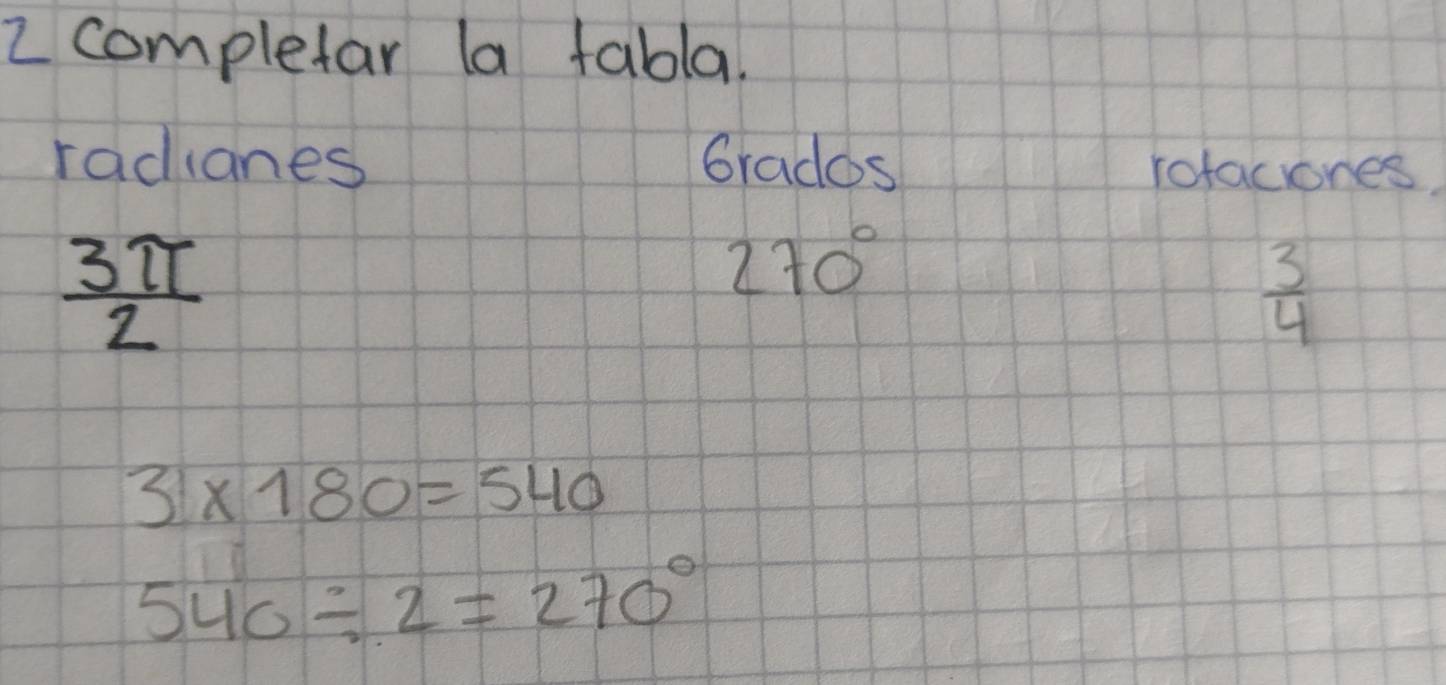 2 completar la tabla.
radianes Grados rotaciones.
3π/2 270° 3/4
3 x 180 = 540
540 ÷ 2 = 270°